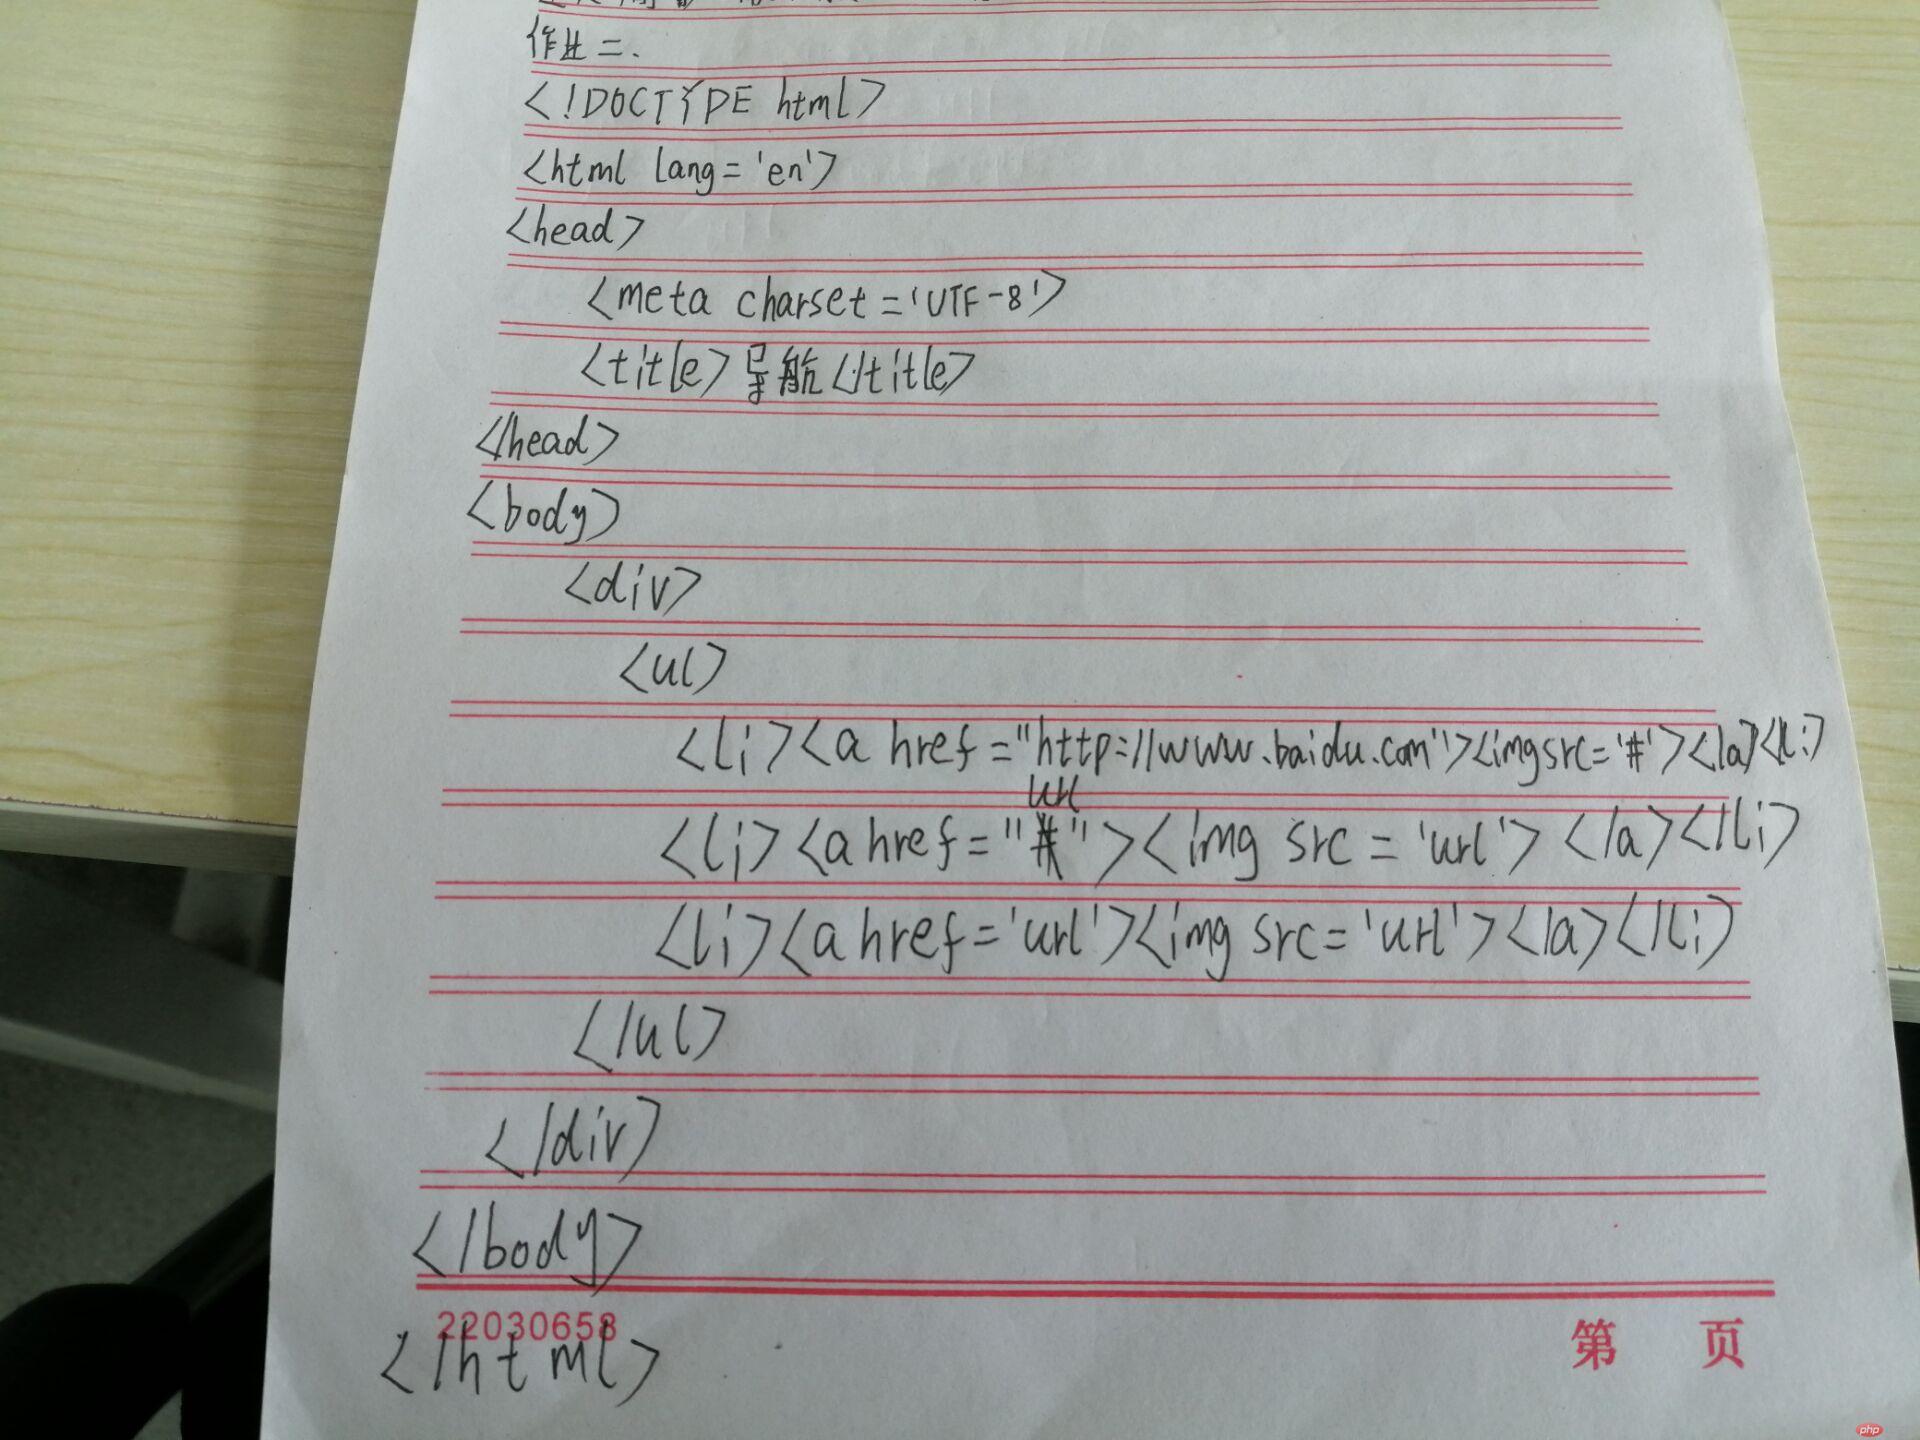 作业二.
<!DOCTYPE html>
<html lang='en'>
<head>
<meta charset='UTF-8'>
<title>导航</title>
</head>
<body>
<div>
<ul>
<li><a href="http://www.baidu.com"><img src='#'></a><li>
url
<li><a href="#"><img src='url'></a></li>
<li><a href='url'><img src='url'></a></li>
</ul>
</div>
</body>
22030658
第 页
</html>
php